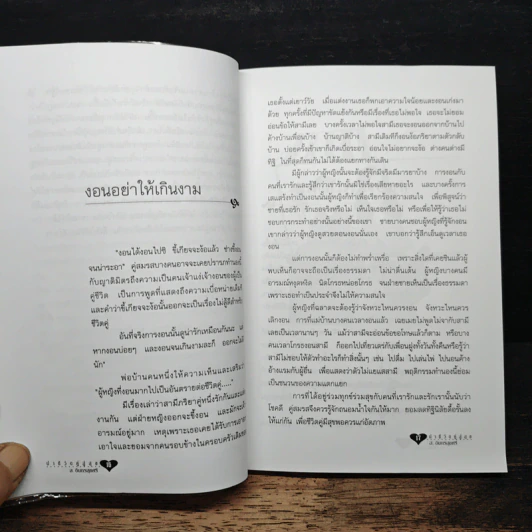 งอนอย่าให้เกินงาม
"งอนได้งอนไปซิ ขี้เกียจจะง้อแล้ว ช่างขี้งอน
จนน่าระอา" คู่สมรสบางคนอาจจะเคยปรารภทำนองนี้
กับญาติมิตรถึงความเป็นคนเจ้าแง่เจ้างอนของผู้เป็น
คู่ชีวิต เป็นการพูดที่แสดงถึงความเบื่อหน่ายเต็มที
และคำว่าขี้เกียจจะง้อนั้นออกจะเป็นเรื่องไม่สู้ดีสำหรับ
ชีวิตคู่
อันที่จริงการงอนนั้นดูน่ารักเหมือนกันนะ แต่
หากงอนบ่อยๆ และงอนจนเกินงามละก็ ออกจะไม่
นัก
พ่อบ้านคนหนึ่งให้ความเห็นและเสริมว่า
"ผู้หญิงที่งอนมากไปเป็นอันตรายต่อชีวิตคู่....."
มีเรื่องเล่าว่าสามีภริยาคู่หนึ่งรักกันและ
งานกัน แต่ฝ่ายหญิงออกจะขี้งอน และมักจะ
อารมณ์อยู่มาก เหตุเพราะเธอเคยได้รับการ
เอาใจและยอมจากคนรอบข้างในครอบครัวเสีย
เธอตั้งแต่เยาว์วัย เมื่อแต่งงานเธอก็พกเอาความใจน้อยแสนงอนเก่งมา
ด้วย ทุกครั้งที่มีปัญหาขัดแย้งกันหรือมีเรื่องที่เธอไม่พอใจ เธอจะไม่ยอม
อ่อนข้อให้สามีเลย บางครั้งเวลาไม่พอใจสามีเธอจะงอนออกจากบ้านไป
ค้างบ้านเพื่อนบ้าง บ้านญาติบ้าง สามีเดิมทีก็งอนง้อภริยาตามตัวกลับ
บ้าน บ่อยครั้งเข้าเขาก็เกิดเบื่อระอา อ่อนใจไม่อยากจะง้อ ต่างคนต่างมี
ทิฐิ ในที่สุดก็ทนกันไม่ได้ต้องแยกทางกันเดิน
มีผู้กล่าวว่าผู้หญิงนั้นจะต้องรู้จักมีจริตมีมารยาบ้าง การงอนกับ
คนที่เรารักและรู้สึกว่าเขารักนั้นมิใช่เรื่องเสียหายอะไร และบางครั้งการ
เสแสร้งทำเป็นงอนนั้นผู้หญิงก็ทำเพื่อเรียกร้องความสนใจ เพื่อพิสูจน์ว่า
ชายที่เธอรัก รักเธอจริงหรือไม่ เห็นใจเธอหรือไม่ หรือเพื่อให้รู้ว่าเธอไม่
ชอบการกระทำอย่างนั้นอย่างนี้ของเขา ชายบางคนชอบผู้หญิงที่รู้จักงอน
เขากล่าวว่าผู้หญิงดูสวยตอนงอนนั่นเอง เขาบอกว่ารู้สึกเอ็นดูเวลาเธอ
งอน
แต่การงอนนั้นก็ต้องไม่ทำพร่ำเพรื่อ เพราะสิ่งใดที่เคยชินแล้วผู้
พบเห็นก็อาจจะถือเป็นเรื่องธรรมดา ไม่น่าตื่นเต้น ผู้หญิงบางคนมี
อารมณ์หงุดหงิด นิดโกรธหน่อยโกรธ จนฝ่ายชายเห็นเป็นเรื่องธรรมดา
เพราะเธอทำเป็นประจำจึงไม่ให้ความสนใจ
ผู้หญิงที่ฉลาดจะต้องรู้ว่าจังหวะไหนควรงอน จังหวะไหนควร
เลิกงอน การที่แม่บ้านบางคนเวลางอนแล้ว เฉยเมยไม่พูดไม่จากับสามี
เลยเป็นเวลานานๆ วัน แม้ว่าสามีจะอ่อนข้อขอโทษแล้วก็ตาม หรือบาง
คนเวลาโกรธงอนสามี ก็ออกไปเที่ยวเตร่กับเพื่อนฝูงทั้งวันทั้งคืนหรือรู้ว่า
สามีไม่ชอบให้ตัวทำอะไรก็ทำสิ่งนั้นๆ เช่น ไปดื่ม ไปเล่นไพ่ ไปนอนค้าง
อ้างแรมกับผู้อื่น เพื่อแสดงว่าตัวไม่แยแสสามี พฤติกรรมทำนองนี้ย่อม
เป็นชนวนของความแตกแยก
การที่ได้อยู่ร่วมทุกข์ร่วมสุขกับคนที่เรารักและรักเรานั้นนับว่า
โชคดี คู่สมรสจึงควรรู้จักถนอมน้ำใจกันให้มาก ยอมลดทิฐินิสัยดื้อรั้นลง
ให้แก่กัน เพื่อชีวิตคู่มีสุขพอควรแก่อัตภาพ